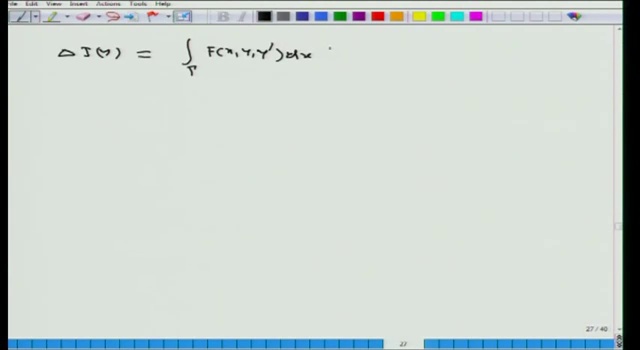 File Edit View Insert Actions Tools Help
Δ J(Y) = ∫_Γ F(x, Y, Y') dx
27 / 40
27